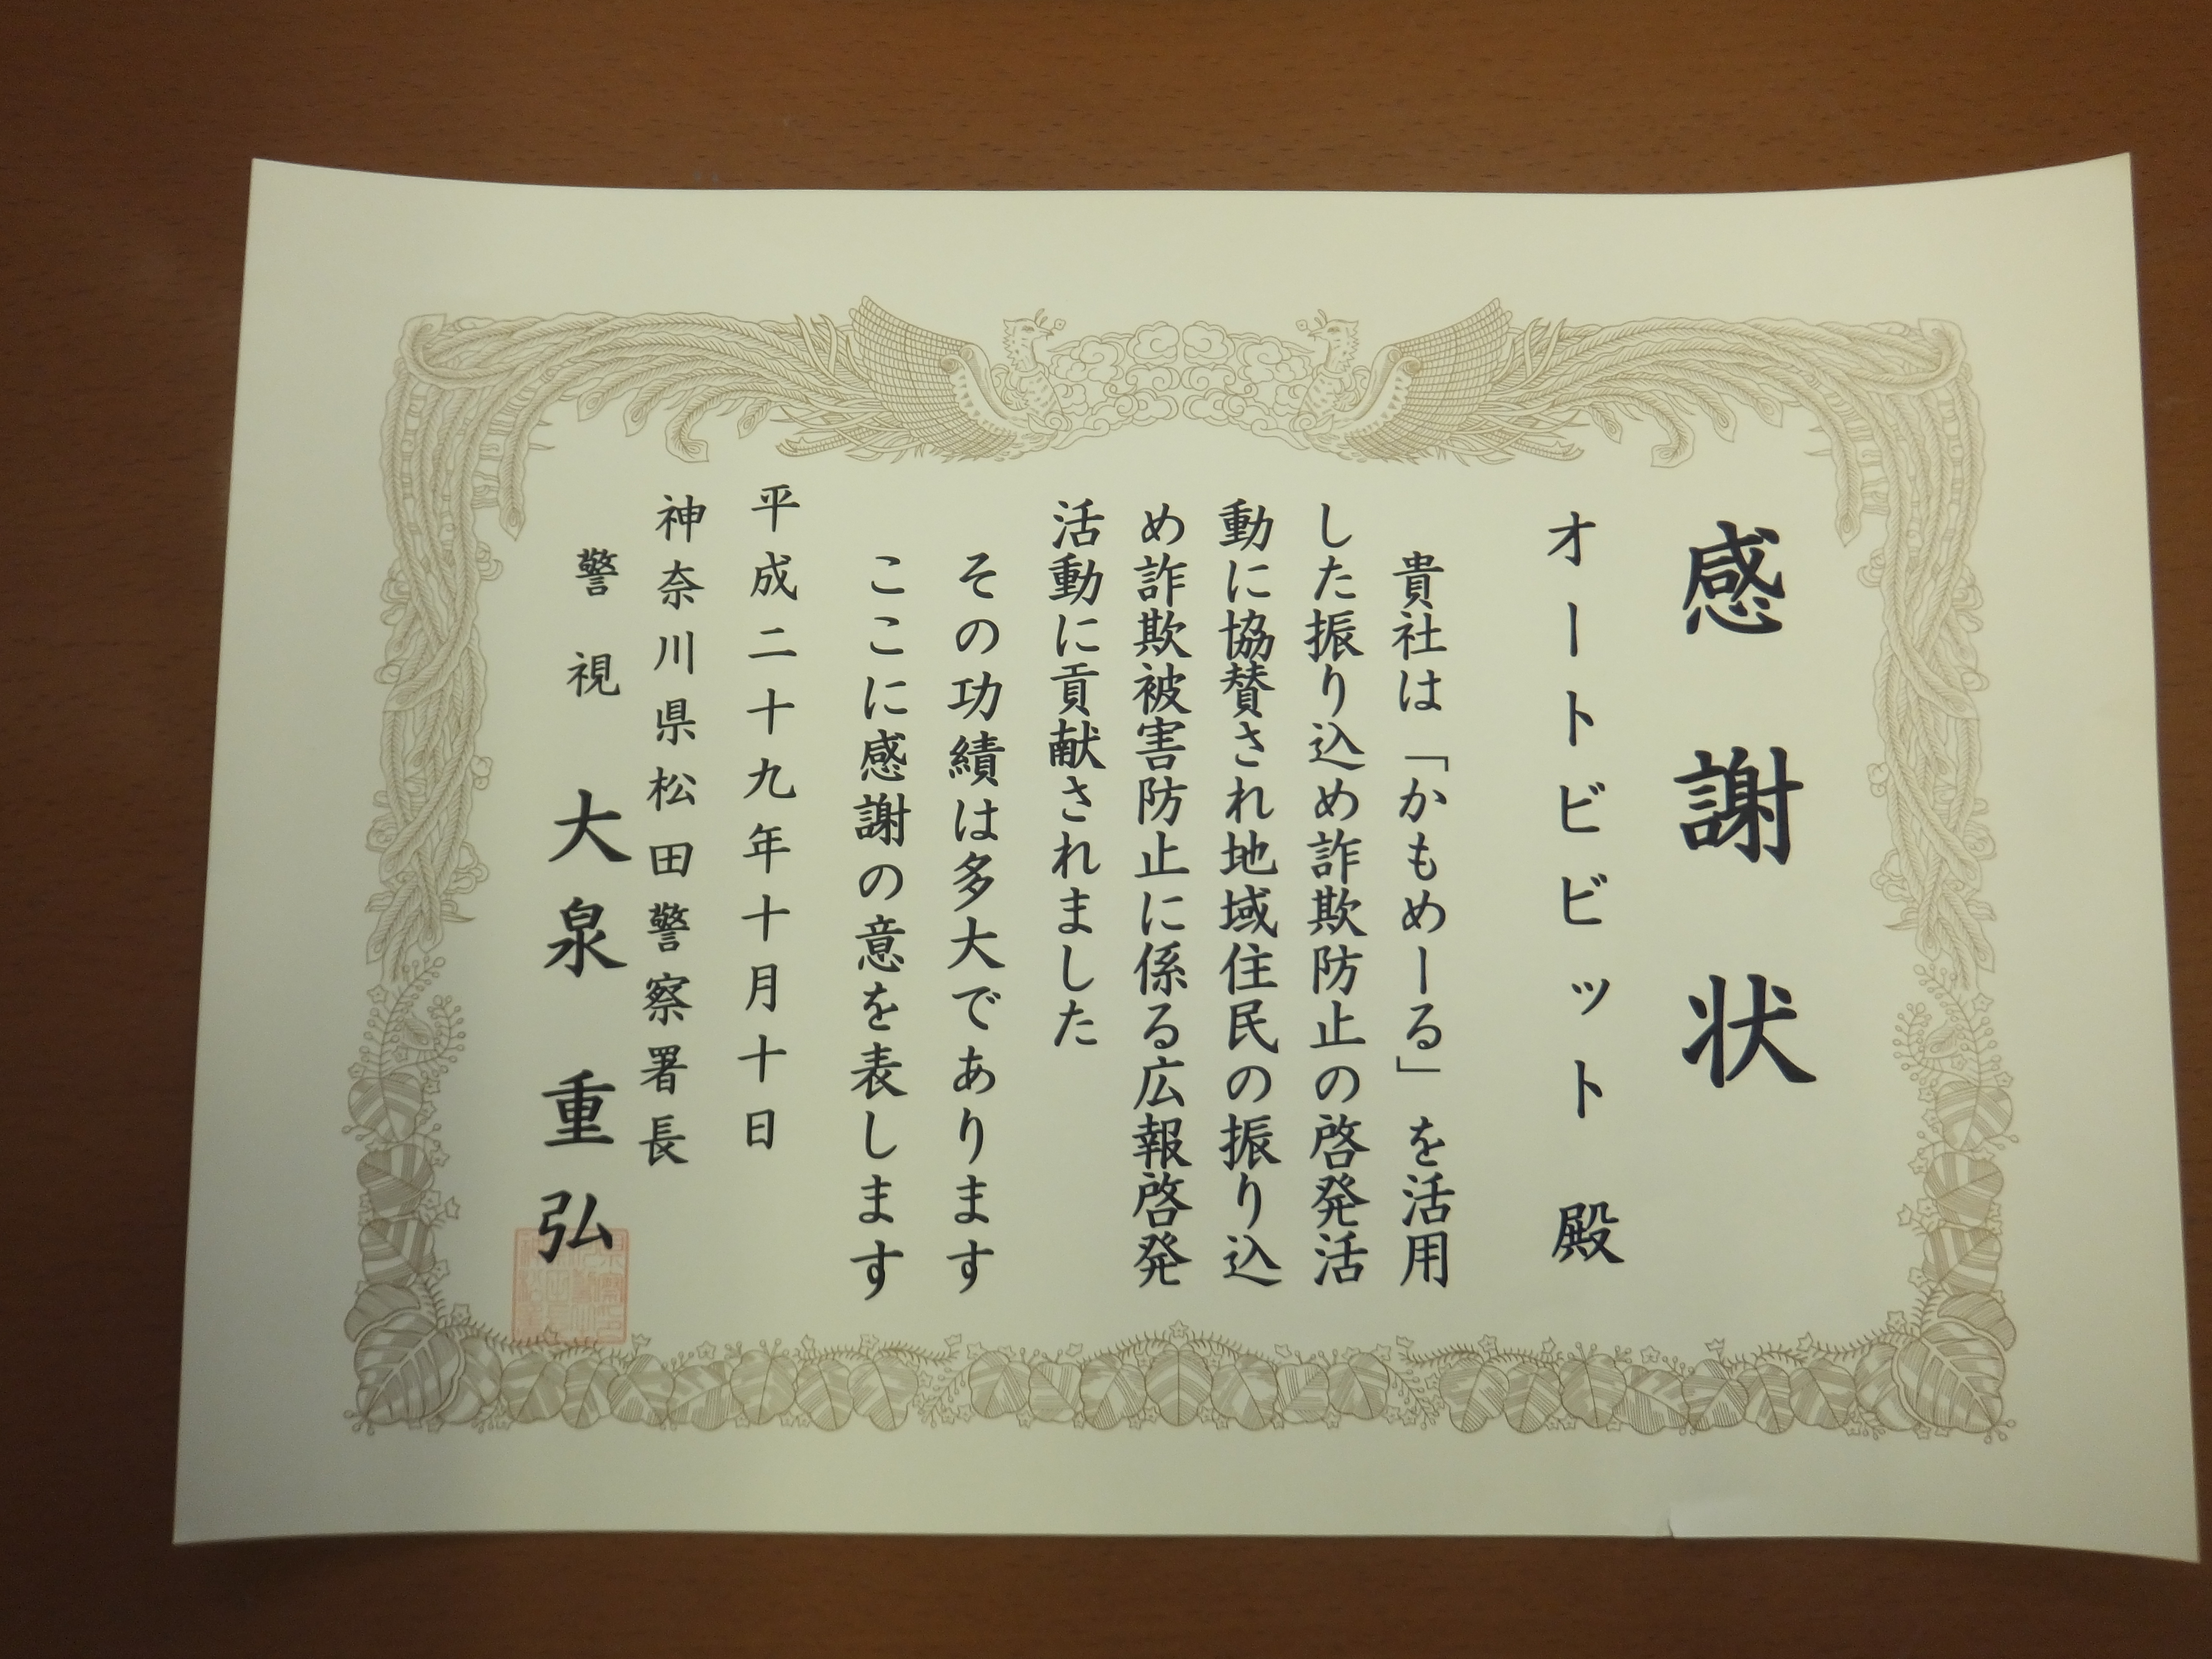 感謝状
オートビビット 殿
貴社は「かもめーる」を活用
した振り込め詐欺防止の啓発活
動に協賛され地域住民の振り込
め詐欺被害防止に係る広報啓発
活動に貢献されました
その功績は多大であります
ここに感謝の意を表します
平成二十九年十月十日
神奈川県松田警察署長
警視 大泉重弘